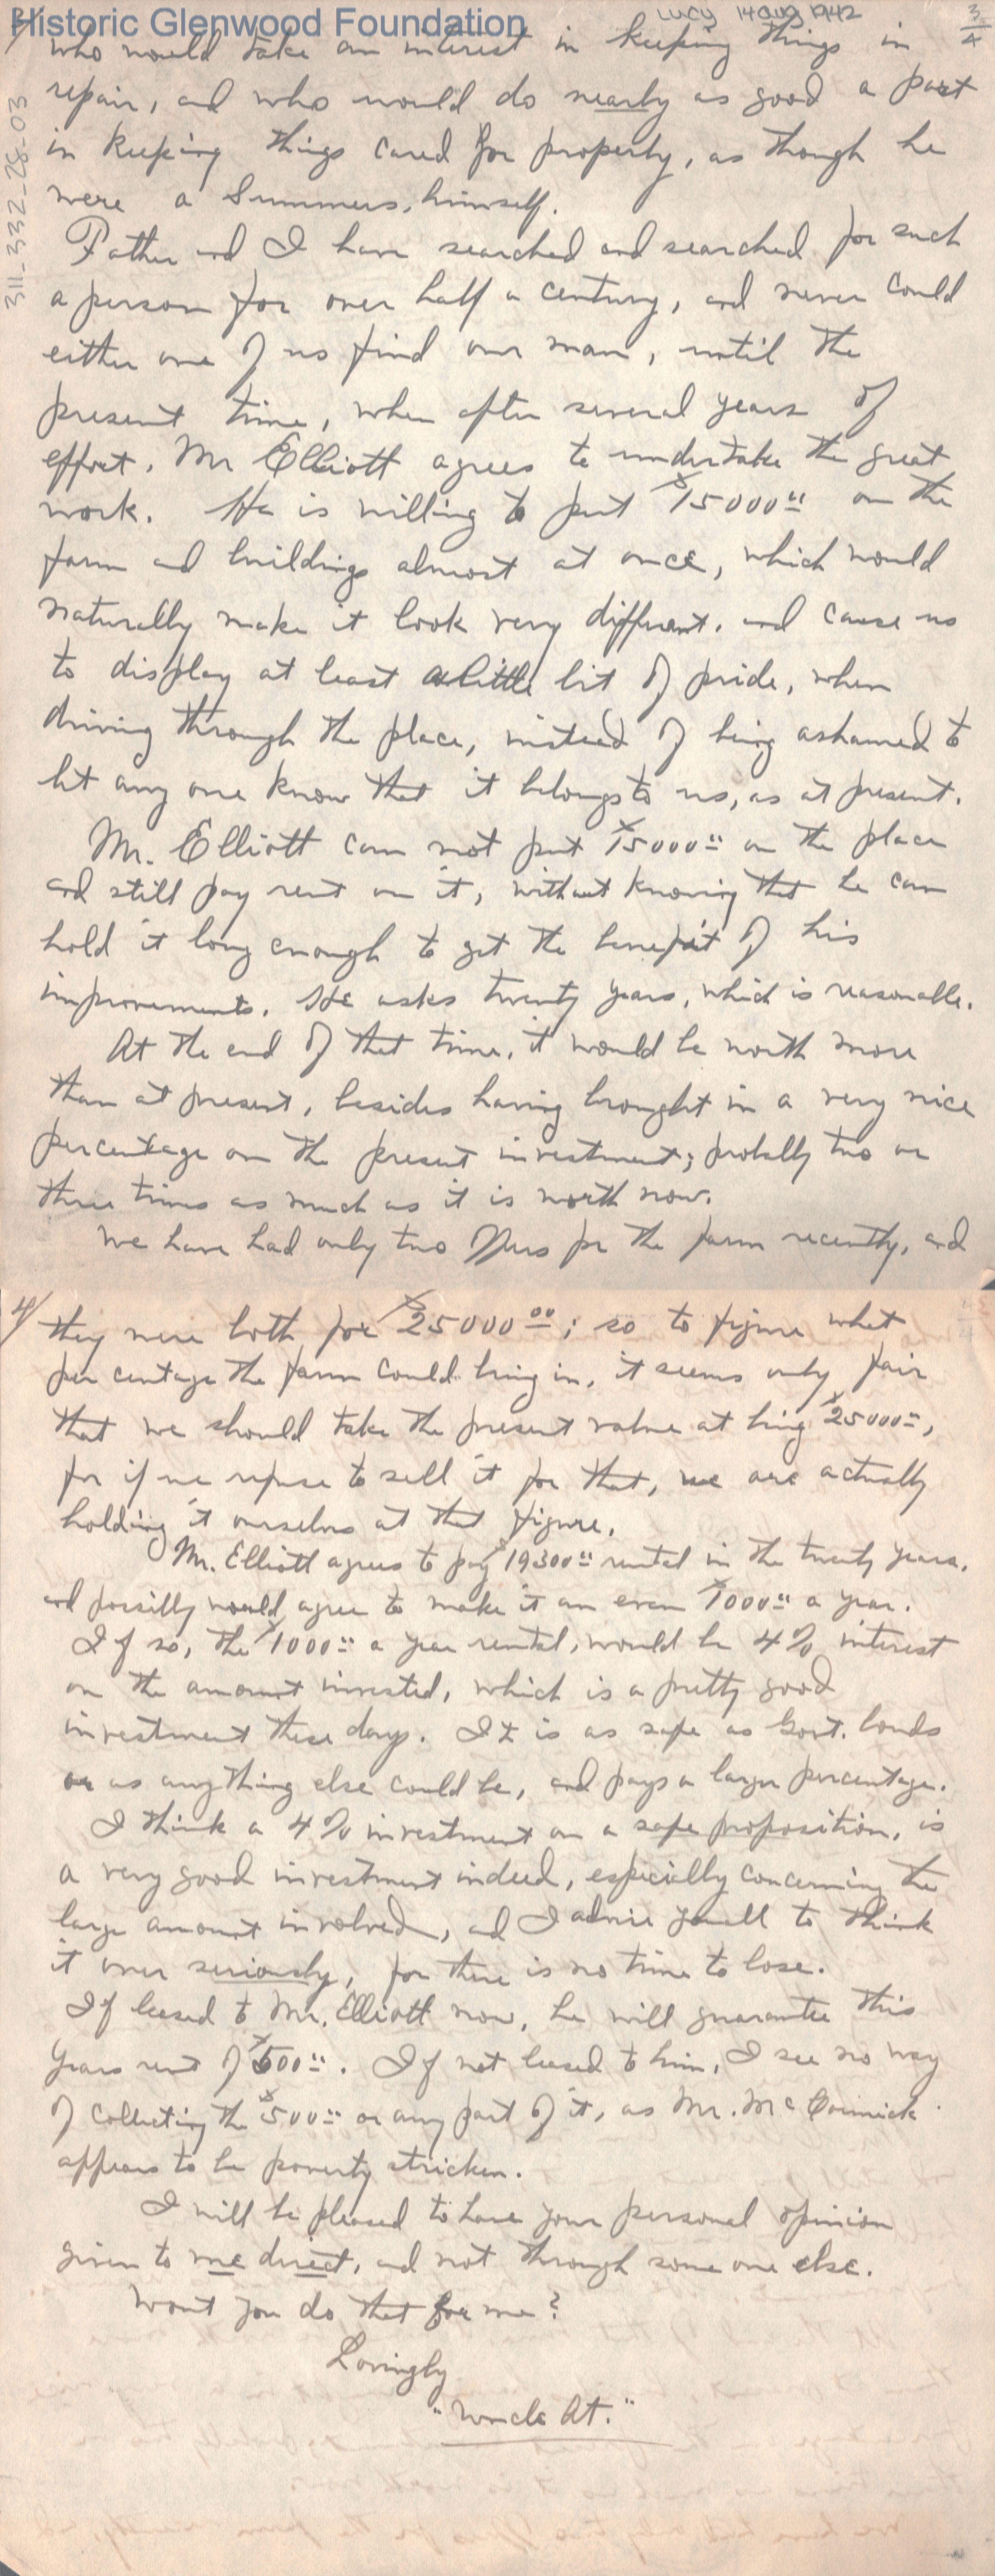 Historic Glenwood Foundation
Lucy 14 Aug 1942
3/4
311_332_28_03
3/
who would take an interest in keeping things in
repair, and who would do nearly as good a part
in keeping things cared for property, as though he
were a Summers, himself.
Father and I have searched and searched for such
a person for over half a century, and never could
either one of us find our man, until the
present time, when after several years of
effort, Mr Elliott agrees to undertake the great
work. He is willing to put $15000.00 on the
farm and buildings almost at once, which would
naturally make it look very different, and cause us
to display at least a little bit of pride, when
driving through the place, instead of being ashamed to
let any one know that it belongs to us, as at present.
Mr. Elliott can not put $15000.00 on the place
and still pay rent on it, without knowing that he can
hold it long enough to get the benefit of his
improvements. He asks twenty years, which is reasonable.
At the end of that time, it would be worth more
than at present, besides having brought in a very nice
percentage on the present investment; probally two or
three times as much as it is worth now.
We have had only two offers for the farm recently, and
4/ they were both for $25000.00; so to figure what
per centage the farm could bring in, it seems only fair
that we should take the present value at being $25000.00,
for if we refuse to sell it for that, we are actually
holding it ourselves at that figure.
Mr. Elliott agrees to pay $19300.00 rental in the twenty years,
and possibly would agree to make it an even $1000.00 a year.
If so, the $1000.00 a year rental, would be 4% interest
on the amount invested, which is a pretty good
investment these days. It is as safe as Govt. bonds
or as anything else could be, and pays a larger percentage.
I think a 4% investment on a safe proposition, is
a very good investment indeed, especially concerning the
large amount involved, and I advise you all to think
it over seriously, for there is no time to lose.
If leased to Mr. Elliott now, he will guarantee this
years rent of $500.00. If not leased to him, I see no way
of collecting the $500.00 or any part of it, as Mr. McCormick
appears to be poverty stricken.
I will be pleased to have your personal opinion
given to me direct, and not through some one else.
Wont you do that for me?
Lovingly
"Uncle At."